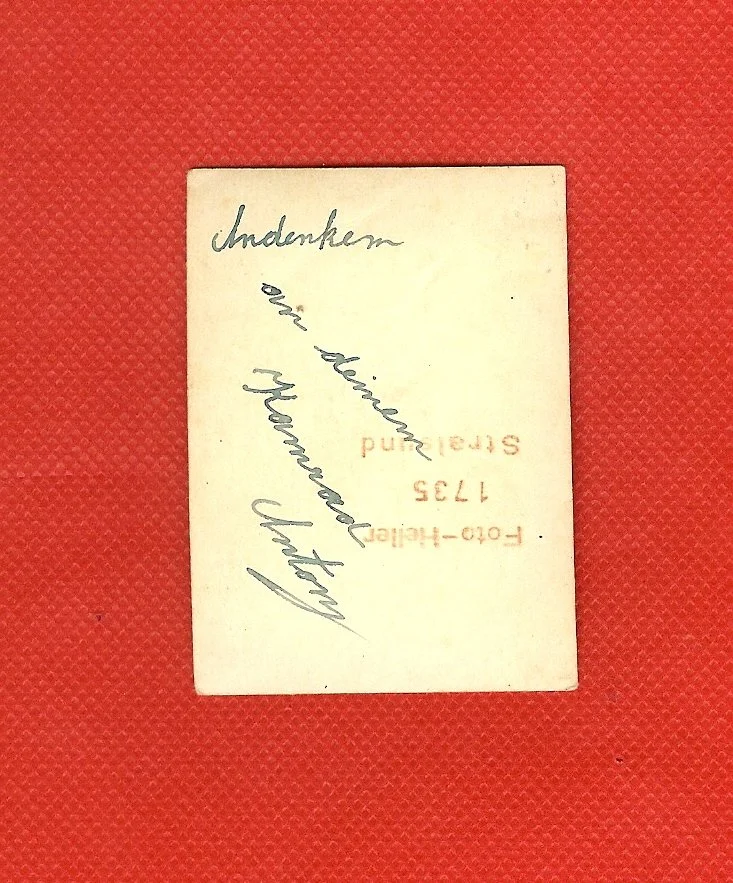 Andenkem
an deinem
Kamrad
Antony
Foto-Heller
1735
Stralsund